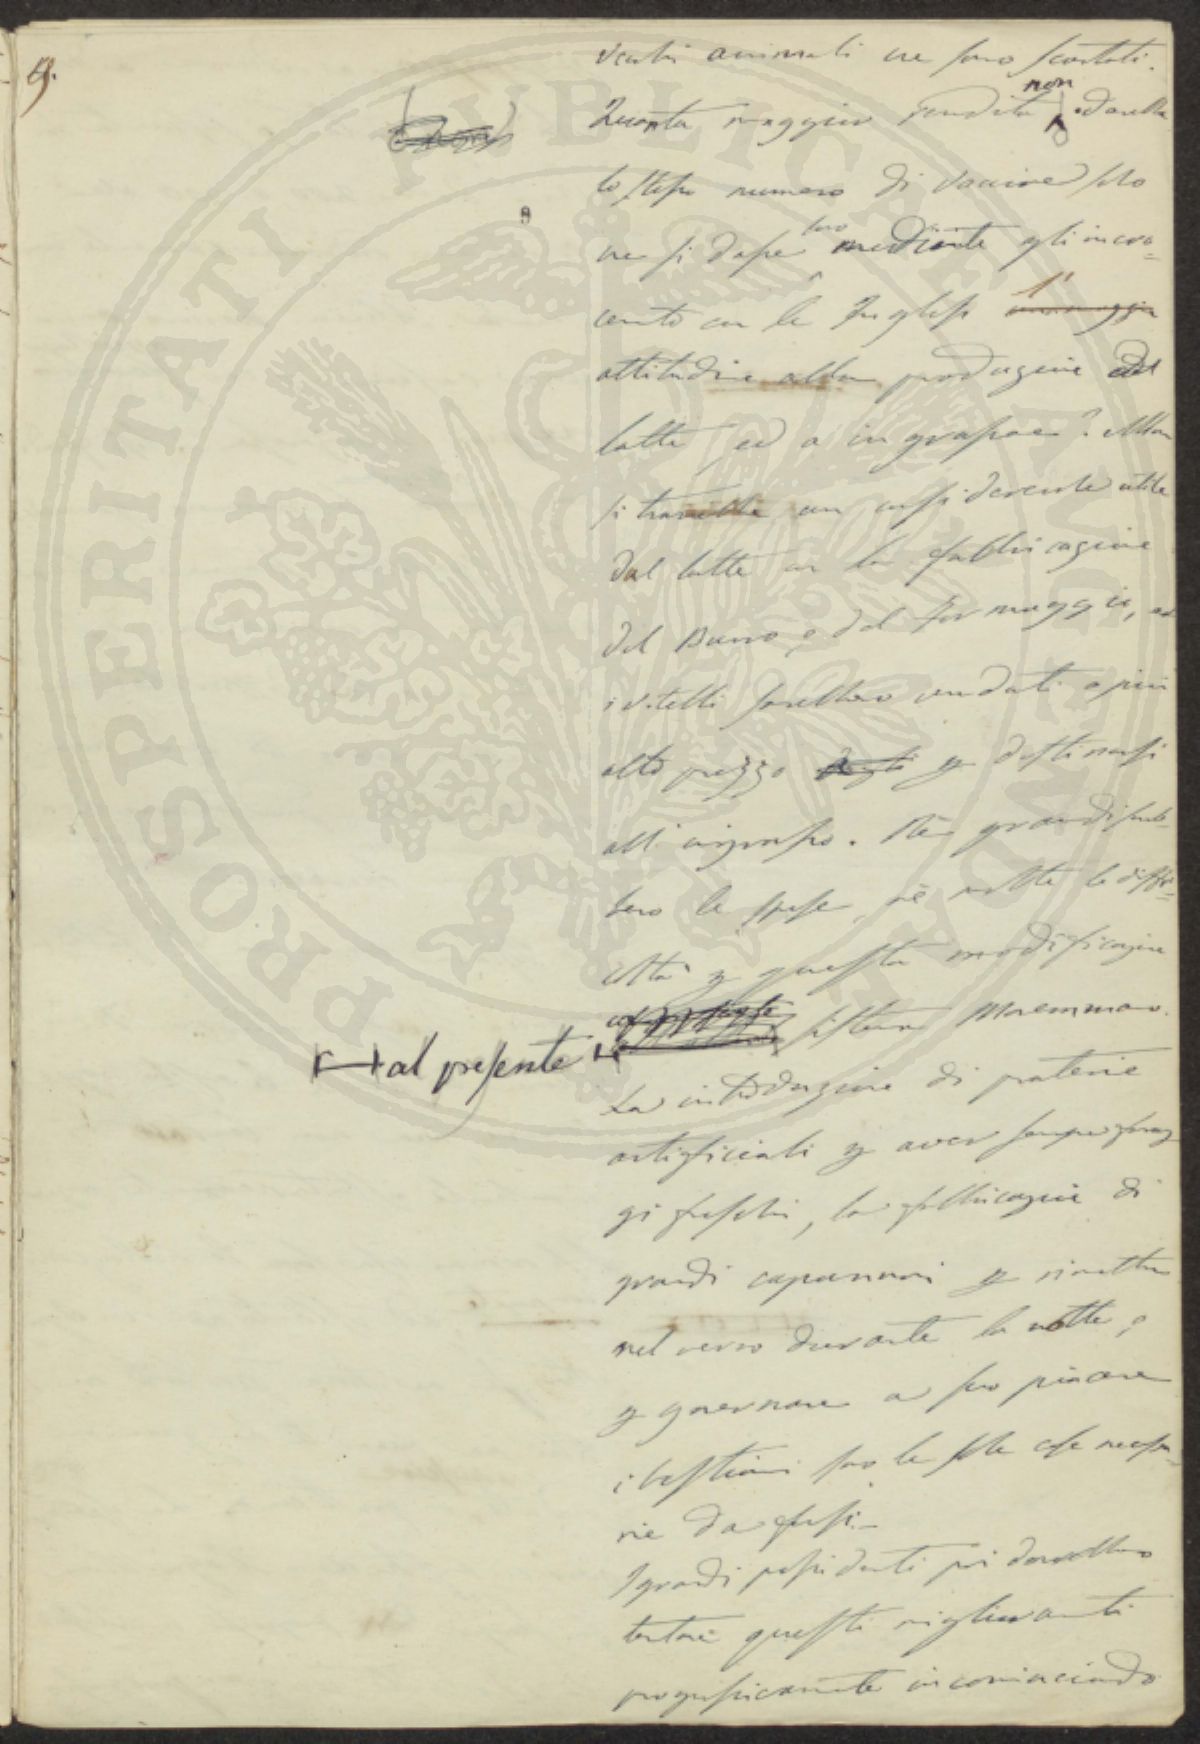 9.
vecchi animali ne sono scartati.
Quanta maggior rendita non darebbe
lo stesso numero di vaccine solo
ne si dasse loro mediante gli incro-
cento con le Inglesi
attitudine alla produzione del
latte ed a ingrassare? Allora
si trarrebbe un considerevole utile
dal latte con la fabbricazione
del Burro, e del Formaggio, ed
i vitelli sarebbero venduti a più
alto prezzo p destinarsi
all'ingrasso. Nè grandi sareb-
bero le spese, nè molte le diffi-
coltà p questa modificazione
al presente sistema Maremmano.
La introduzione di praterie
artificiali p aver sempre forag
gi freschi, la fabbricazione di
grandi capannoni p rimetter
nel verno durante la notte, e
p governare a suo piacere
i bestiami sono le sole cose necessa-
rie da farsi.
I grandi possidenti poi dovrebbero
tentare questi miglioramenti
progressivamente incominciando
PROSPERITATI PUBLICAE AUGENDAE